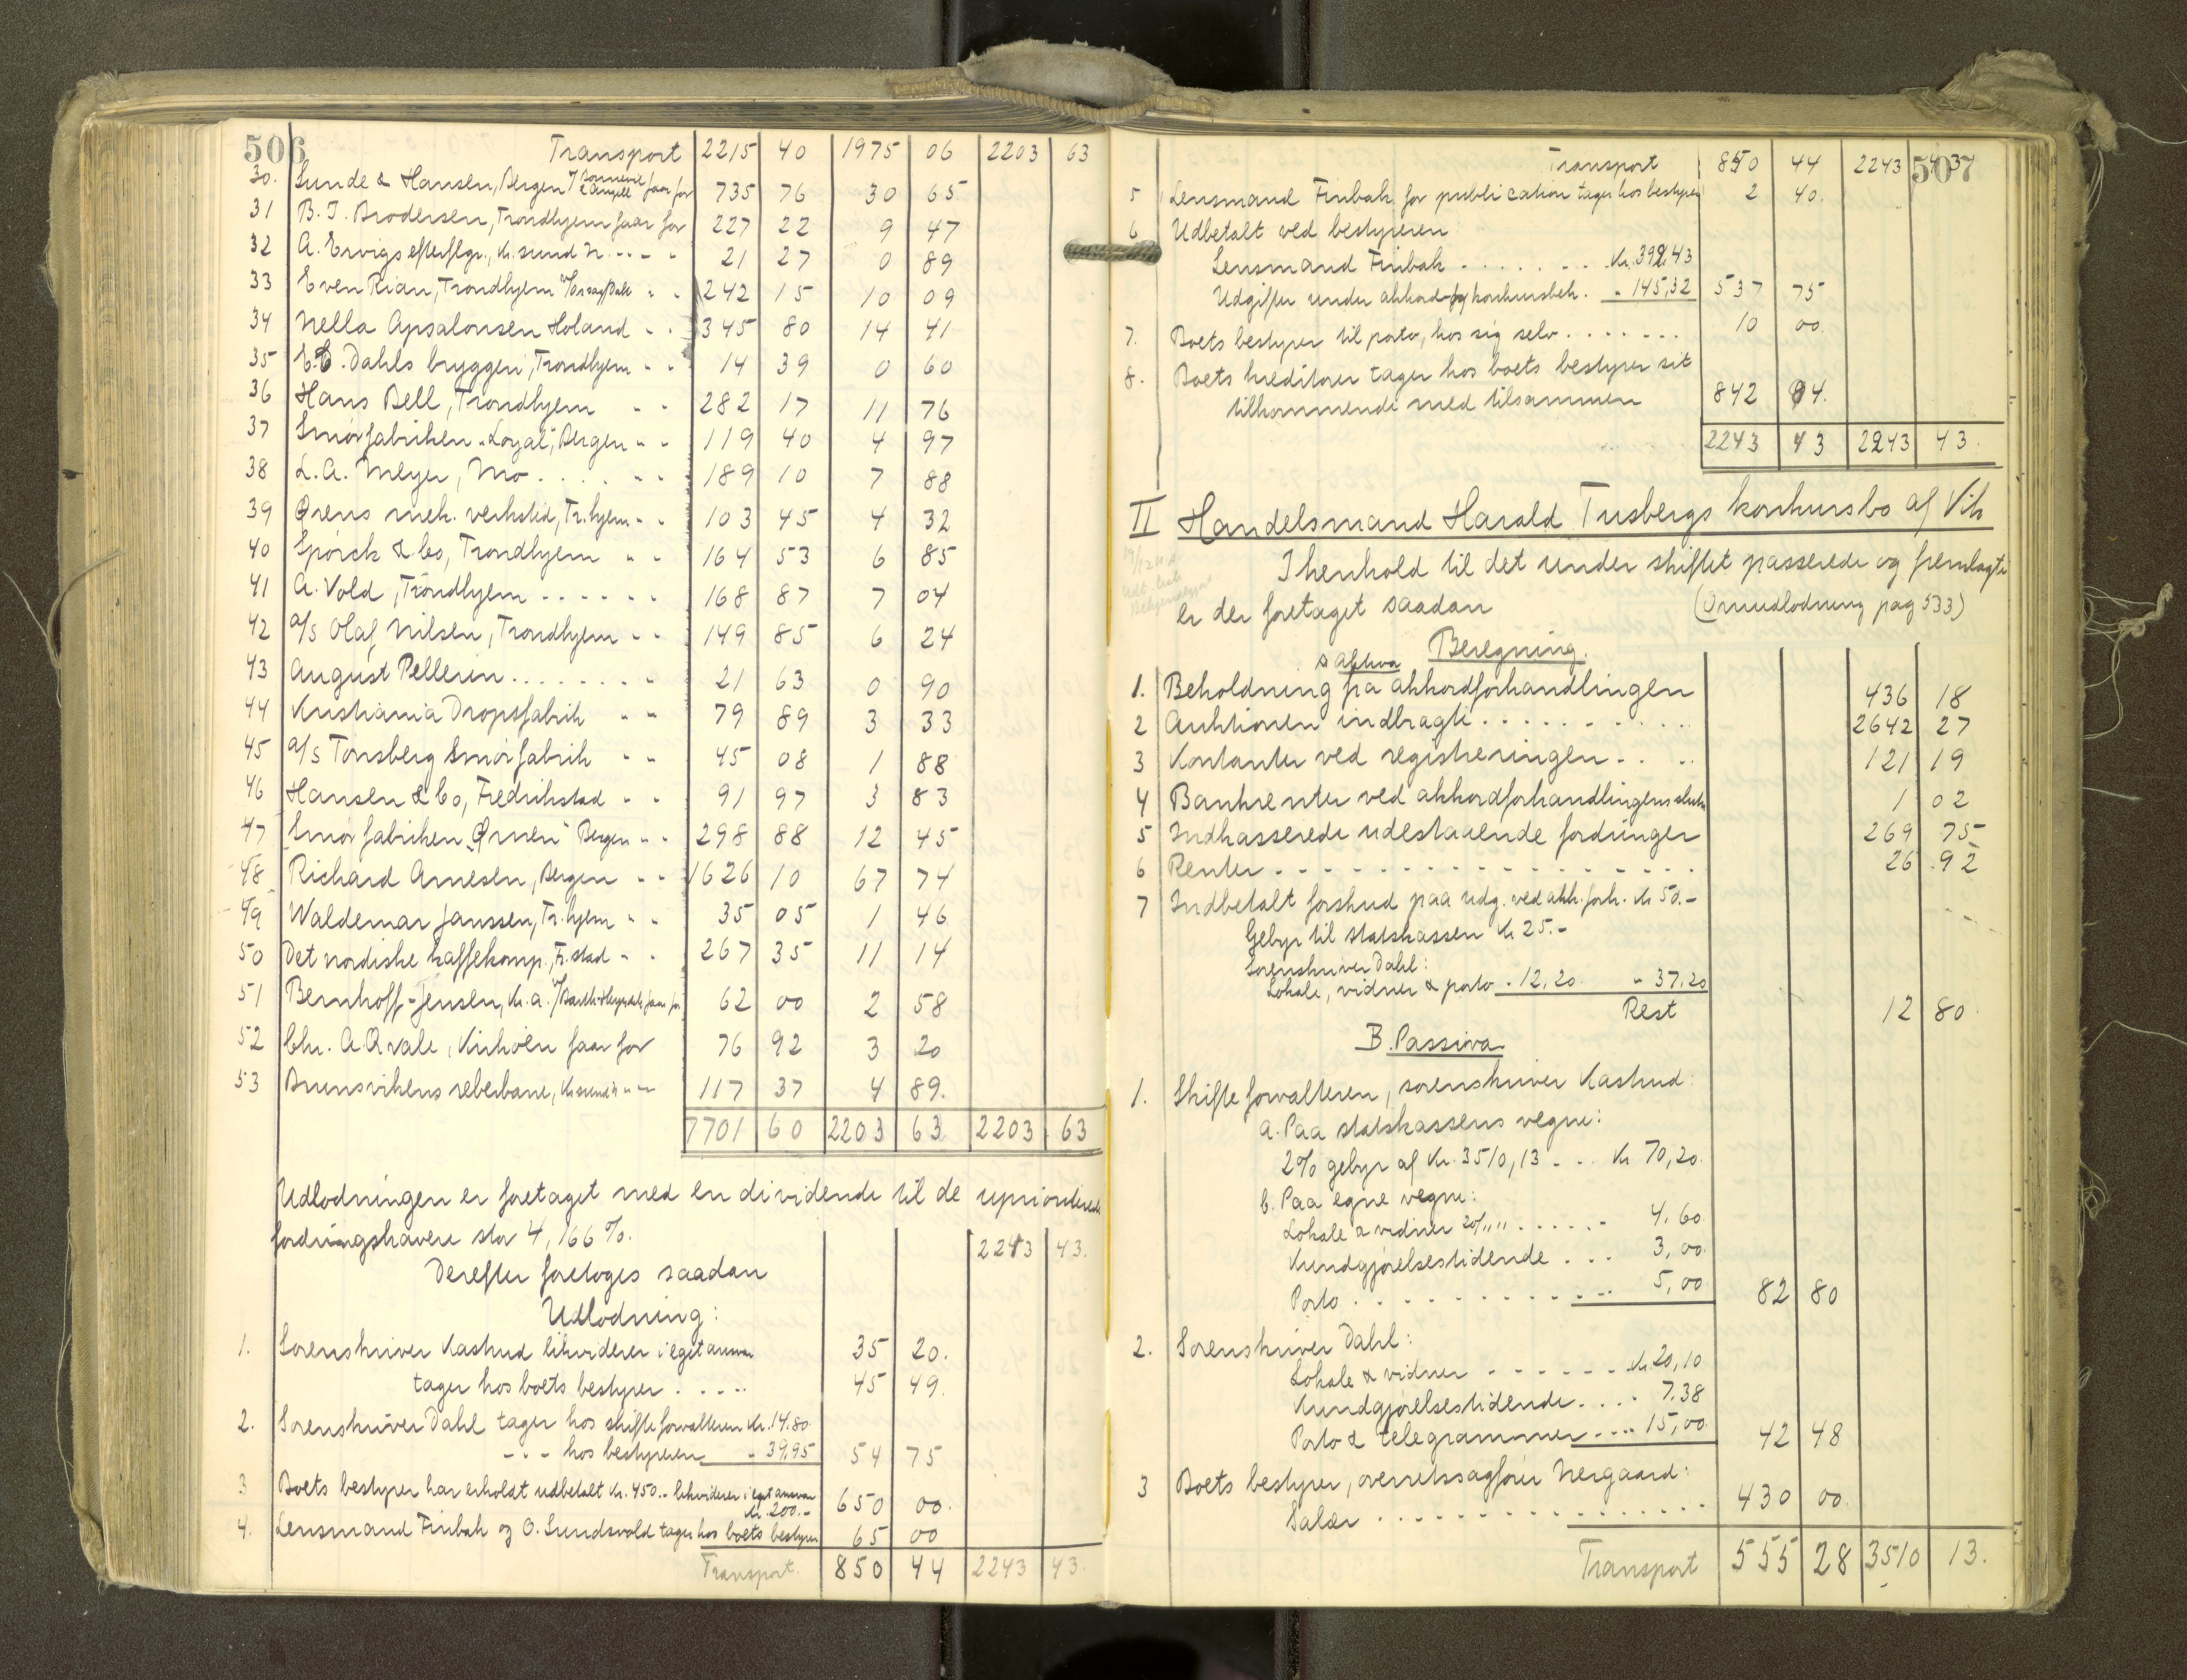 506
Transport 2215 40 1975 06 2203 63
30. Lunde & Hansen, Bergen faar for 735 76 30 65
31 B. I. Brodersen, Trondhjem faar for 227 22 9 47
32 A. Ervigs efterflgr., Kr.sund N. 21 27 0 89
33 Even Rian, Trondhjem 242 15 10 09
34 Nella Apsalonsen Holand " " 345 80 14 41
35 E. C. Dahls bryggeri, Trondhjem " " 14 39 0 60
36 Hans Bell, Trondhjem " " 282 17 11 76
37 Smørfabriken "Loyal", Bergen " " 119 40 4 97
38 L. A. Meyer, Mo " " 189 10 7 88
39 Ørens mek. verksted, Tr.hjem " " 103 45 4 32
40 Spørck & Co, Trondhjem " " 164 53 6 85
41 A. Vold, Trondhjem 168 87 7 04
42 a/s Olaf Nilsen, Trondhjem " " 149 85 6 24
43 August Pellerin 21 63 0 90
44 Kristiania Dropsfabrik " " 79 89 3 33
45 a/s Tønsberg Smørfabrik " " 45 08 1 88
46 Hansen & Co, Fredrikstad " " 91 97 3 83
47 Smørfabriken "Ørnen" Bergen " " 298 88 12 45
48 Richard Arnesen, Bergen " " 1626 10 67 74
49 Waldemar Janssen, Tr.hjem " " 35 05 1 46
50 Det nordiske kaffekomp., Fr.stad " " 267 35 11 14
51 Bernhoff-Jensen, Kr.a. faar for 62 00 2 58
52 Chr. A. Qvale, Kirkøen faar for 76 92 3 20
53 Brunsvikens reberbane, Kr.sund N " " 117 37 4 89.
7701 60 2203 63 2203 63
Udlodningen er foretaget med en dividende til de upriorterede
fordringshavere stor 4,166 %.
2243 43.
Derefter foretoges saadan
Udlodning:
1. Sorenskriver Kastrud likviderer i eget ansvar 35 20.
tager hos boets bestyrer 45 49.
2. Sorenskriver Dahl tager hos skifteforvalteren Kr. 14.80
- - - hos bestyreren " 39,95 54 75
3 Boets bestyrer har erholdt udbetalt Kr. 450.- likviderer i eget ansvar
Kr. 200.- 650 00.
4. Lensmand Finbak og O. Sundsvold tager hos boets bestyrer 65 00
Transport. 850 44 2243 43.
507
Transport 850 44 2243 43
5 Lensmand Finbak for publication tager hos bestyrer 2 40.
6 Udbetalt ved bestyreren
Lensmand Finbak Kr. 392,43
Udgifter under akkord- og konkursbeh. " 145,32 537 75
7. Boets bestyrer til porto, hos sig selv 10 00.
8. Boets kreditorer tager hos boets bestyrer sit
tilkommende med tilsammen 842 84.
2243 43 2243 43.
II Handelsmand Harald Tusbergs konkursbo af Vik
I henhold til det under skiftet passerede og fremlagte
er der foretaget saadan (Omudlodning pag 533)
Beregning.
A Aktiva
1. Beholdning fra akkordforhandlingen 436 18
2 Auktionen indbragte 2642 27
3 Kontanter ved registreringen 121 19
4 Bankrenter ved akkordforhandlingens slut 1 02
5 Indkasserede udestaaende fordringer 269 75
6 Renter 26 92
7 Indbetalt forskud paa udg. ved akk.forh. Kr 50.-
Gebyr til statskassen Kr 25.-
Sorenskriver Dahl:
Lokale, vidner & porto " 12,20 " 37,20
Rest 12 80.
B. Passiva
1. Skifteforvalteren, sorenskriver Kastrud:
a. Paa statskassens vegne:
2% gebyr af Kr. 3510,13 Kr 70,20.
b. Paa egne vegne:
Lokale & vidner 4,60
Kundgjørelsestidende 3,00
Porto 5,00 82 80
2. Sorenskriver Dahl:
Lokale & vidner Kr. 20,10
Kundgjørelsestidende 7.38
Porto & telegrammer 15,00. 42 48
3 Boets bestyrer, overretssagfører Nergaard:
Salær 430 00
Transport 555 28 3510 13.